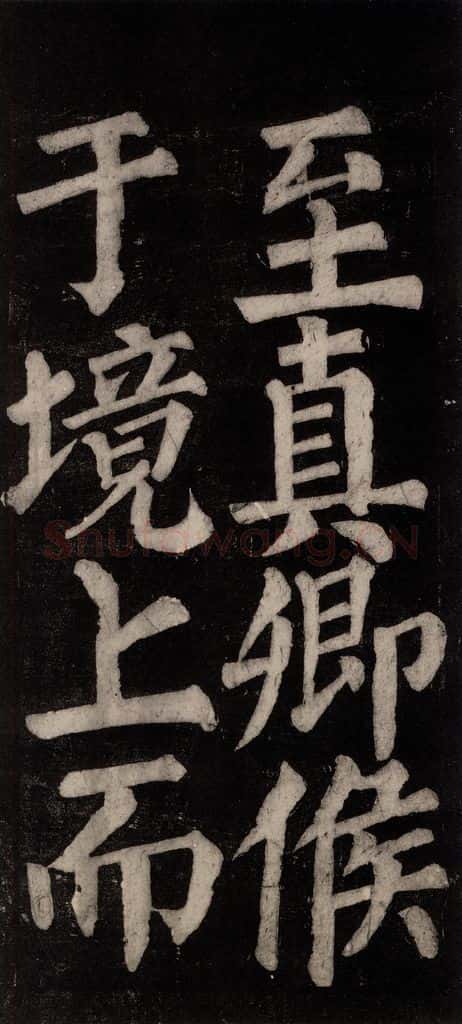 至真卿候
于境上而
Shufawang.CN